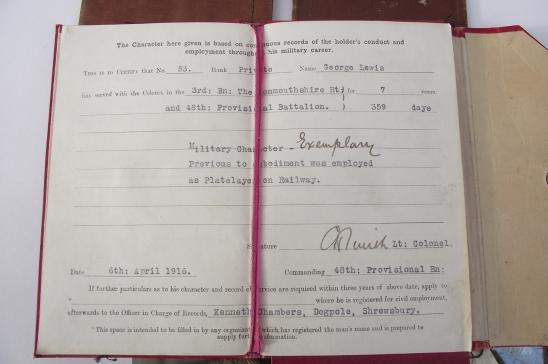 The Character here given is based on con uous records of the holder's conduct and
employment through his military career.
This is to Certify that No 53. Rank Private Name George Lewis
has served with the Colours in the 3rd: Bn: The onmouthshire Rt: ) for 7 years.
and 48th: Provisional Battalion. ) 359 days
Military Character - Exemplary
Previous to bodiment was employed
as Platelayer on Railway.
Signature Lt: Colonel.
Date 6th: April 1916. Commanding 48th: Provisional Bn:
If further particulars as to his character and record of service are required within three years of above date, apply to
* where he is registered for civil employment,
afterwards to the Officer in Charge of Records, Kenneth Chambers, Dogpole, Shrewsbury.
* This space is intended to be filled in by any organisat which has registered the man's name and is prepared to
supply further information.